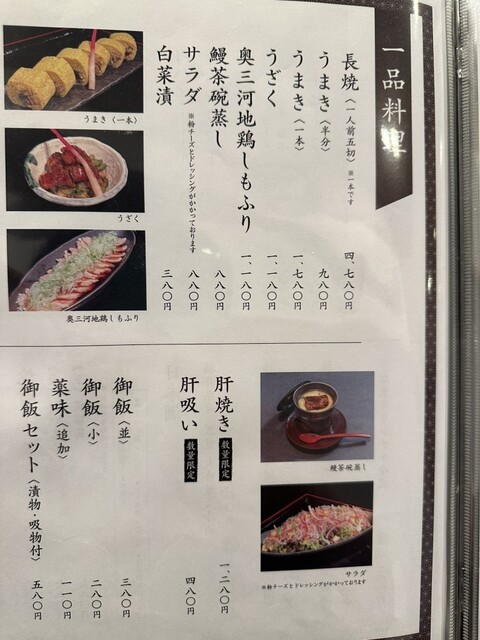 一品料理
長焼〈一人前五切〉※一本です 四、七八〇円
うまき〈半分〉 九八〇円
うまき〈一本〉 一、七八〇円
うざく 一、一八〇円
奥三河地鶏しもふり 一、一八〇円
鰻茶碗蒸し 八八〇円
サラダ ※粉チーズとドレッシングがかかっております 八八〇円
白菜漬 三八〇円
うまき〈一本〉
うざく
奥三河地鶏しもふり
鰻茶碗蒸し
サラダ
※粉チーズとドレッシングがかかっております
肝焼き 数量限定 一、二八〇円
肝吸い 数量限定 四八〇円
御飯〈並〉 三八〇円
御飯〈小〉 二八〇円
薬味〈追加〉 一一〇円
御飯セット〈漬物・吸物付〉 五八〇円